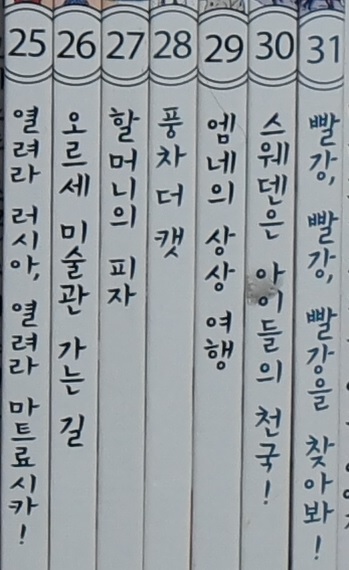 25
열려라 러시아, 열려라 마트료시카!
26
오르세 미술관 가는 길
27
할머니의 피자
28
풍차 더 캣
29
엠네의 상상 여행
30
스웨덴은 아이들의 천국!
31
빨강, 빨강, 빨강을 찾아봐!